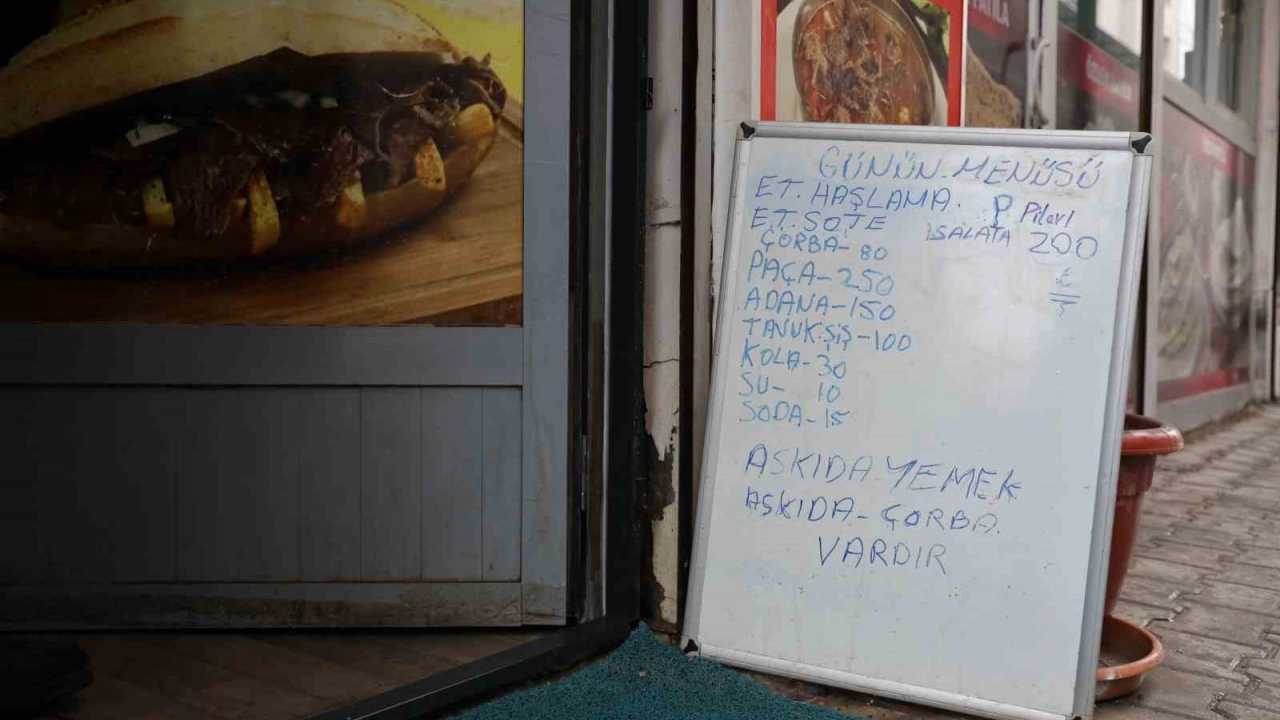 GÜNÜN MENÜSÜ
ET. HAŞLAMA. P Pilavl
ET. SOTE SALATA 200
ÇORBA- 80
PAÇA-250
ADANA-150
TAVUK.ŞİŞ-100
KOLA-30
SU- 10
SODA-15
ASKIDA YEMEK
ASKIDA-ÇORBA.
VARDIR